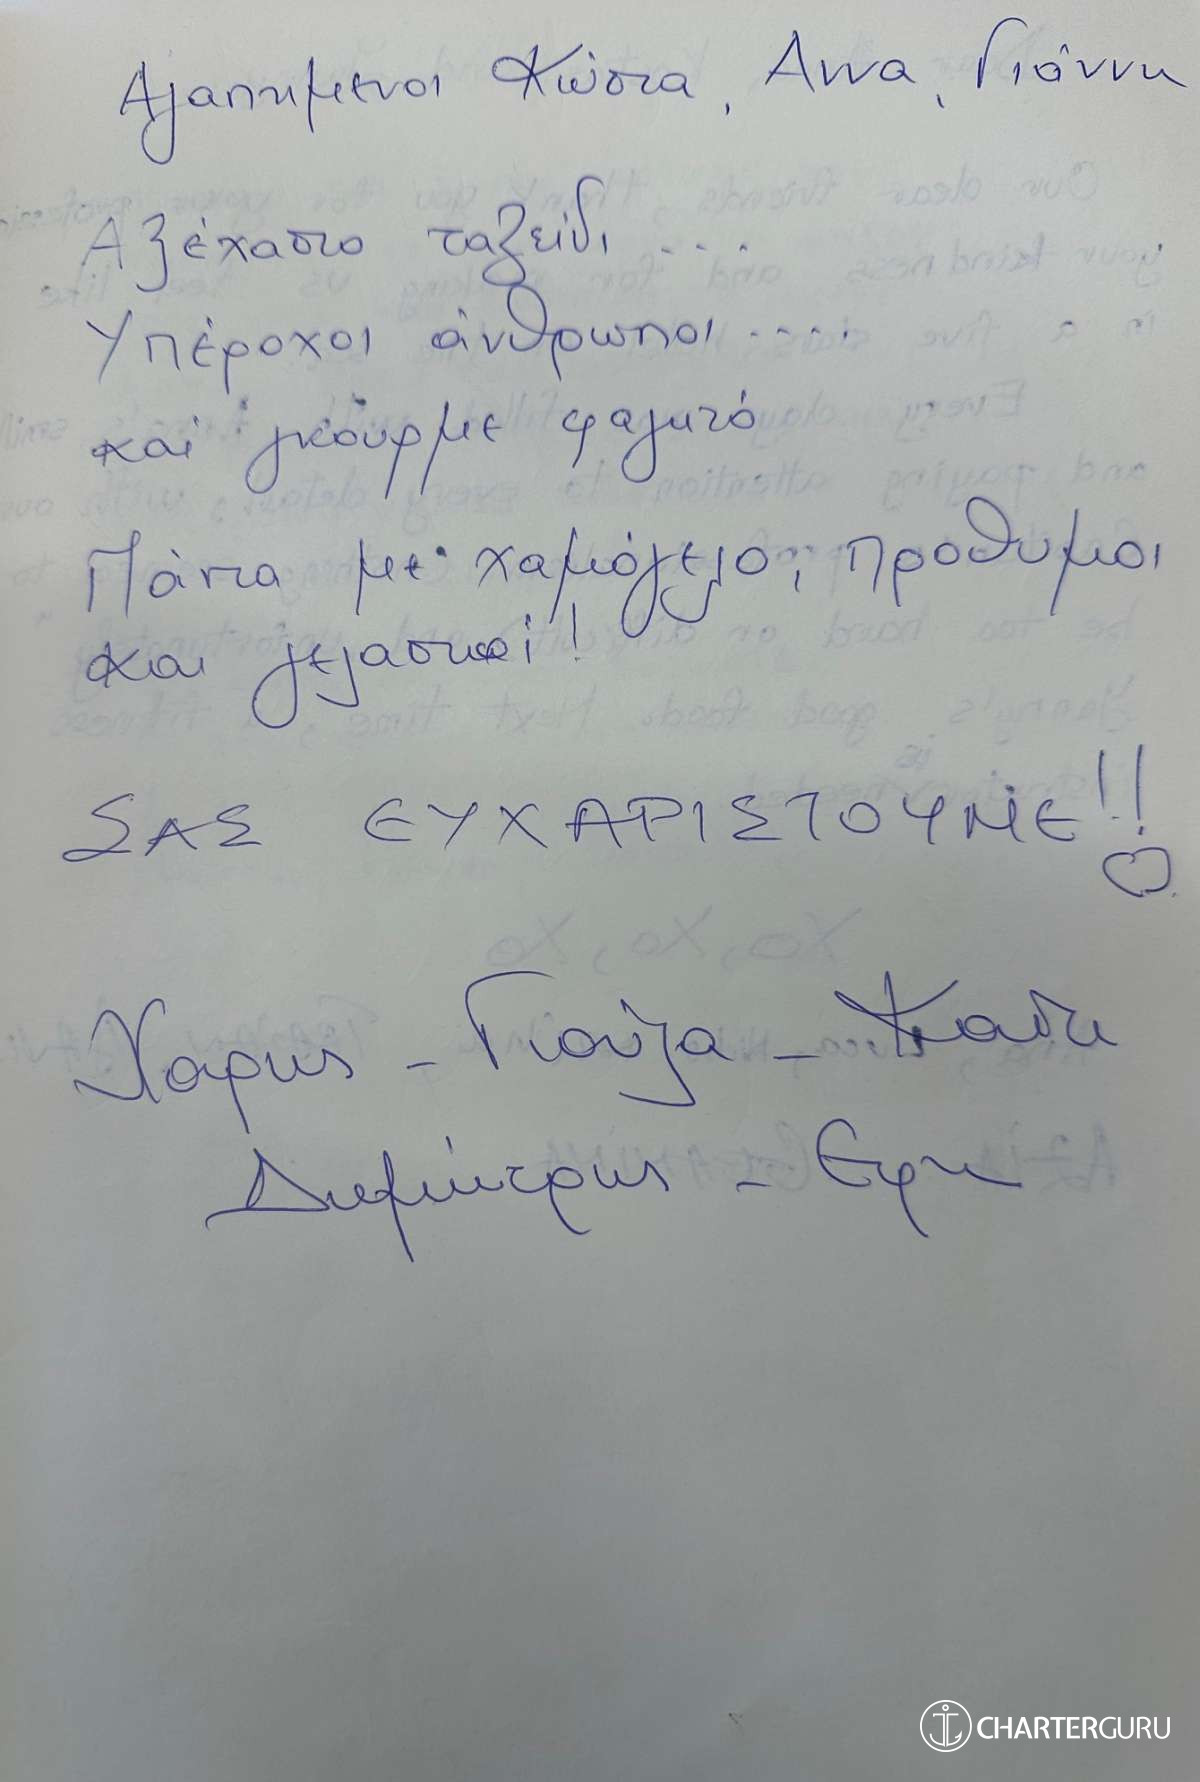 Αγαπημενοι Κώστα, Αννα, Γιάννη
Αξέχαστο ταξείδι ...
Υπέροχοι άνθρωποι ....
και γκούρμε φαγητό
Πάντα με χαμόγελο, πρόθυμοι
και γελαστοί!
ΣΑΣ ΕΥΧΑΡΙΣΤΟΥΜΕ!!
Χαρης - Γιούλα -
Δημήτρης - Εφη
CHARTERGURU